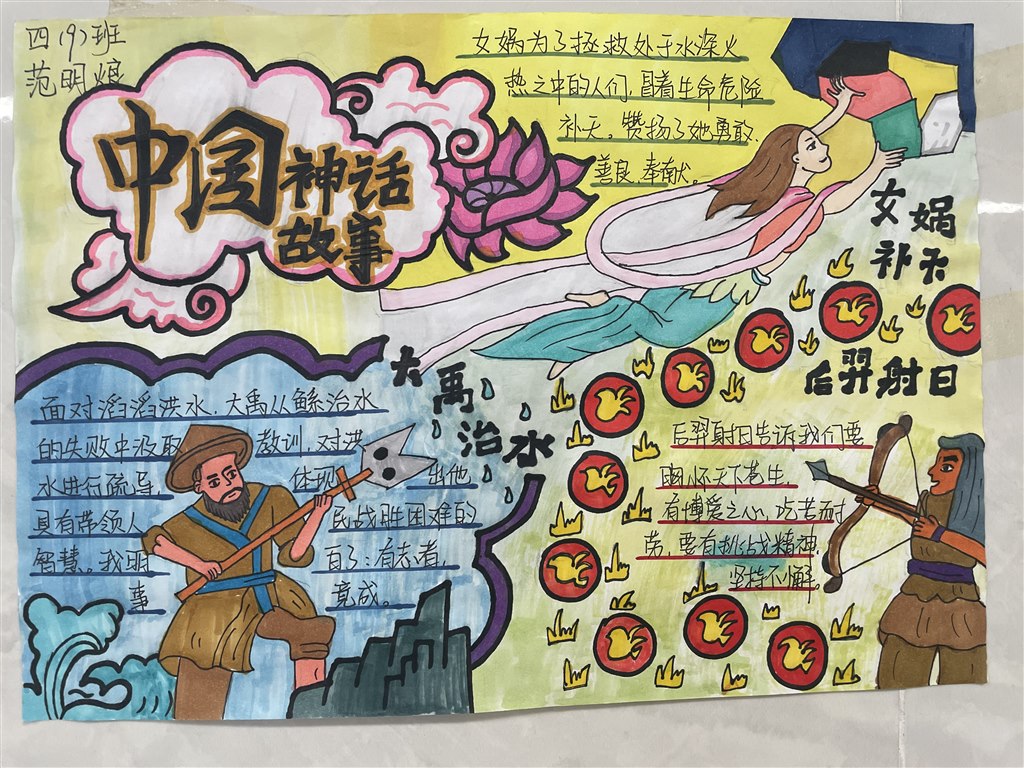 四(9)班
范明煊
中国神话
故事
女娲为了拯救处于水深火
热之中的人们,冒着生命危险
补天。赞扬了她勇敢、
善良、奉献。
女娲
补天
大禹
治水
面对滔滔洪水,大禹从鲧治水
的失败中汲取 教训,对洪
水进行疏导 体现 出他
具有带领人 民战胜困难的
智慧。我明 百了:有志者,
事 竟成。
后羿射日
后羿射日告诉我们要
胸怀天下苍生
有博爱之心,吃苦耐
劳,要有挑战精神,
坚持不懈。